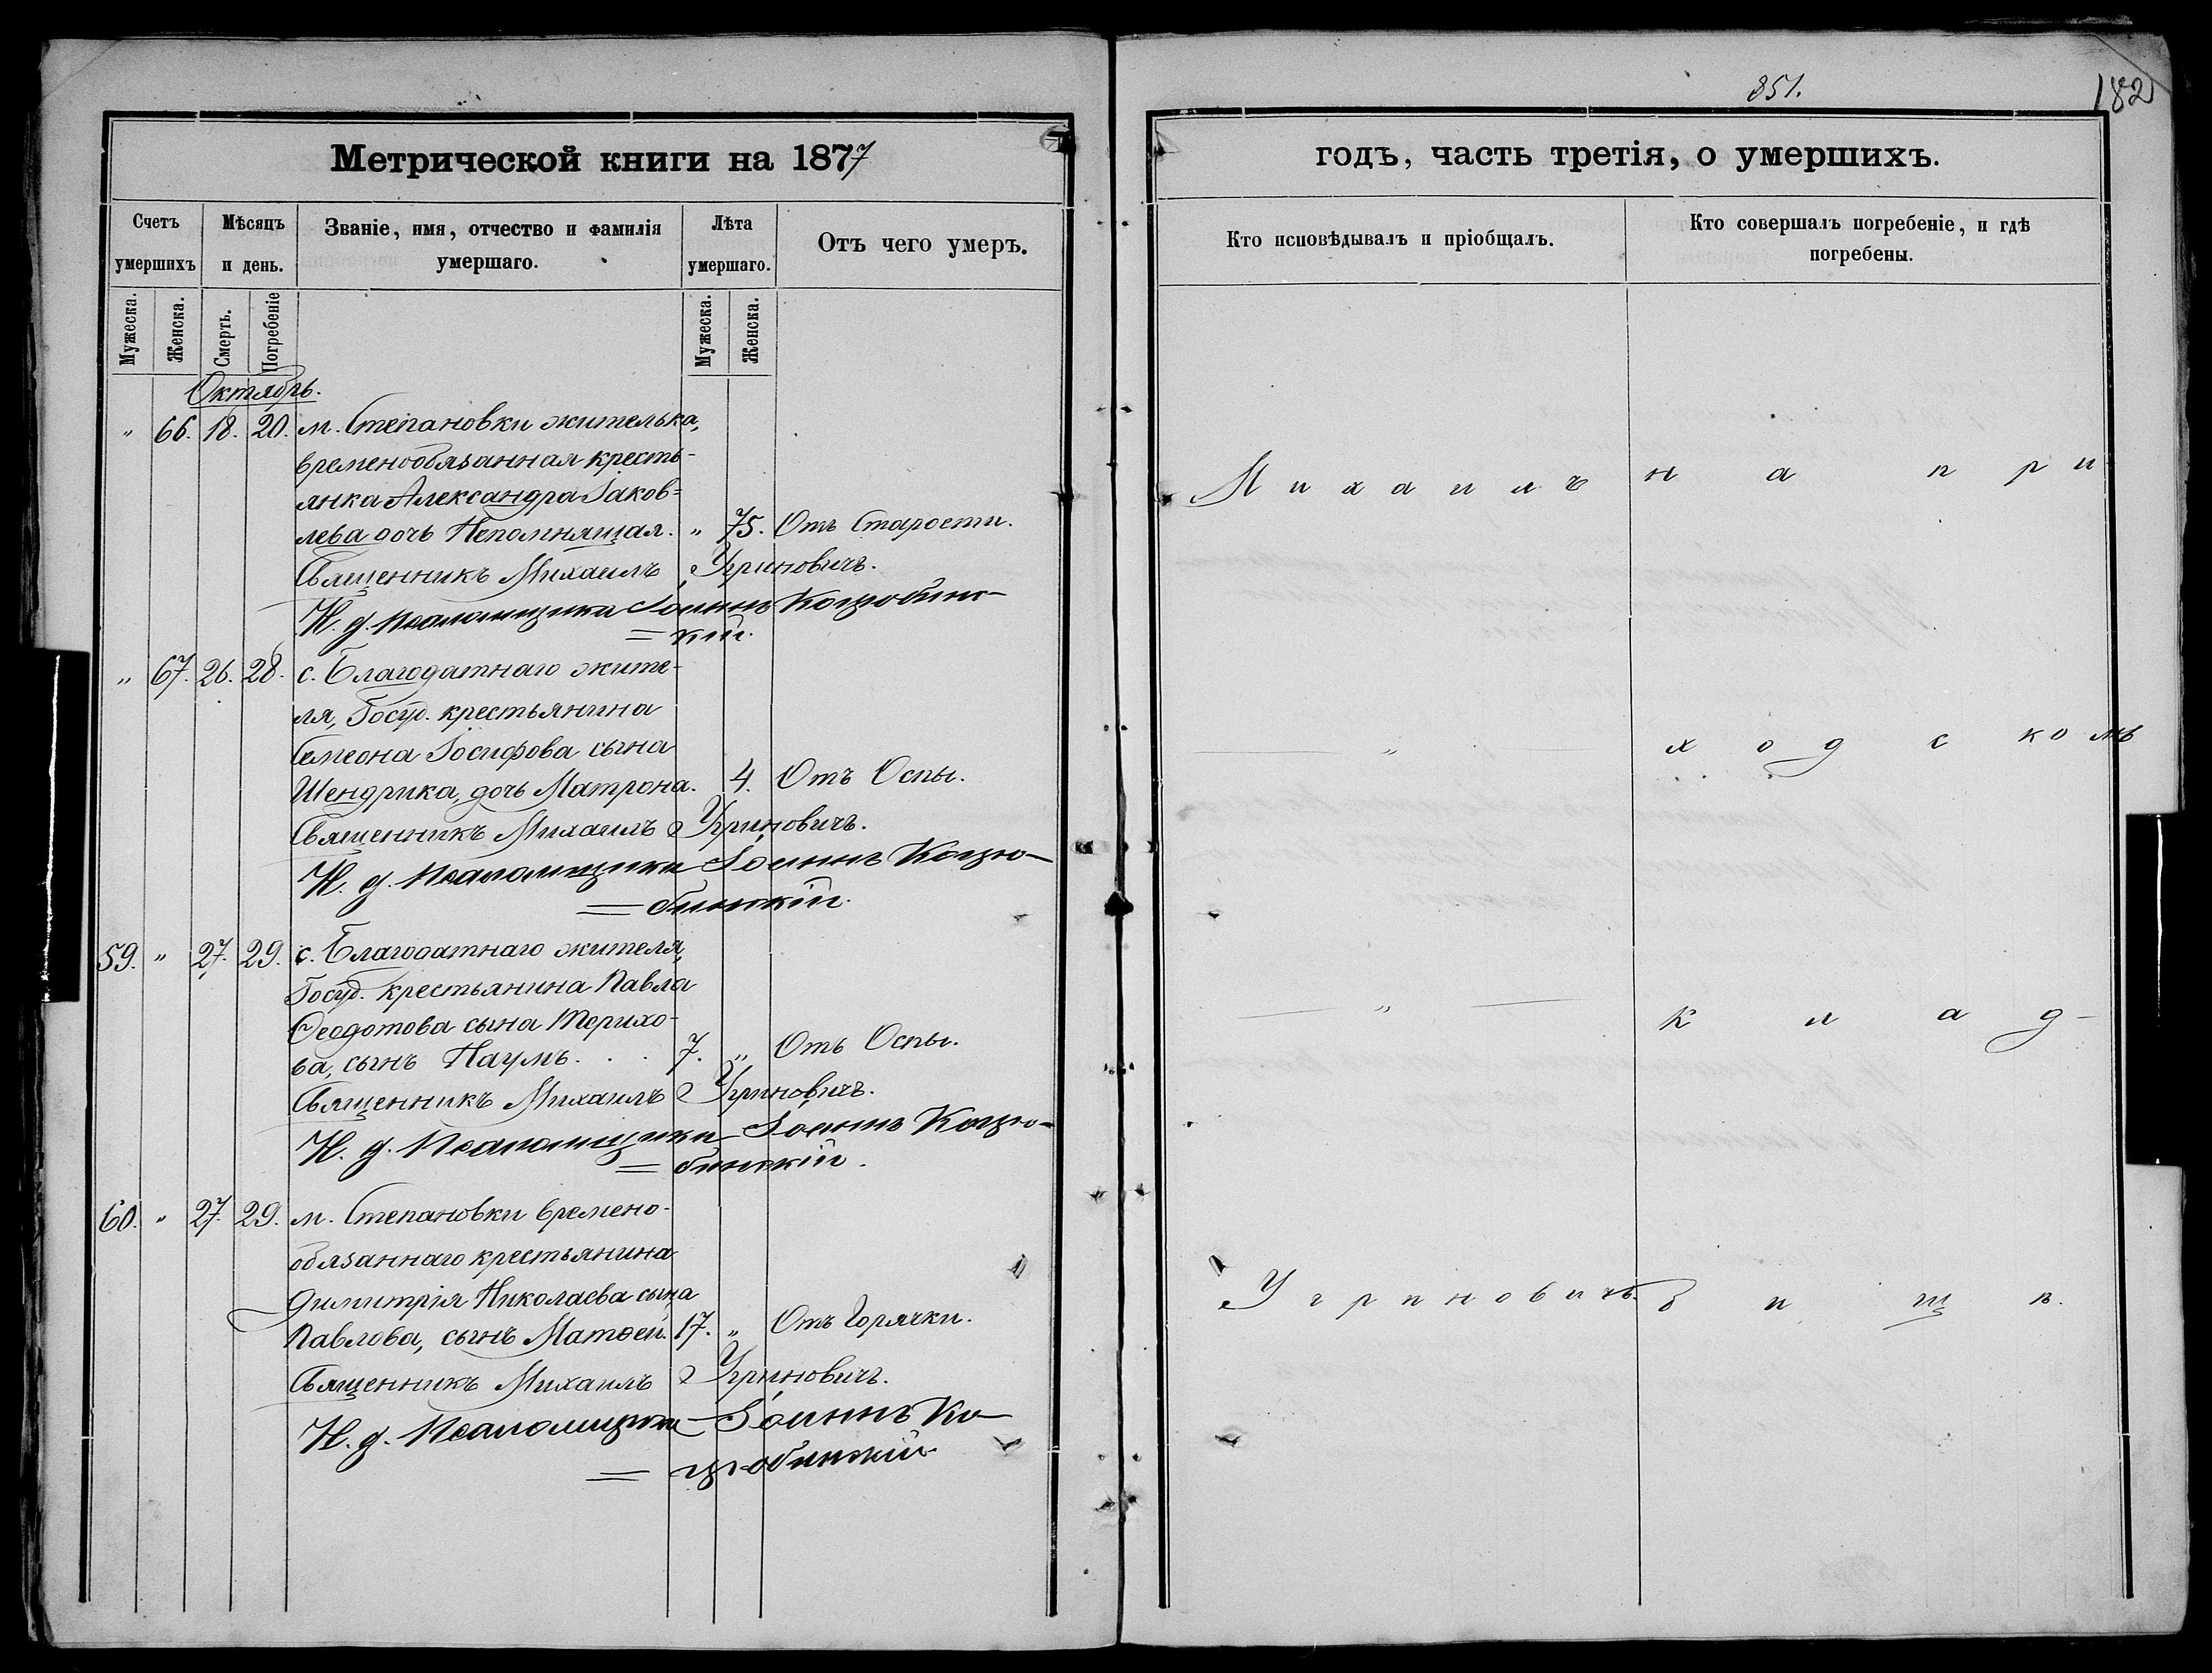 351.
182
Метрической книги на 1877
годъ, часть третія, о умершихъ.
Счетъ умершихъ
Мѣсяцъ и день.
Званіе, имя, отчество и фамилія умершаго.
Лѣта умершаго.
Отъ чего умеръ.
Кто исповѣдывалъ и пріобщалъ.
Кто совершалъ погребеніе, и гдѣ погребены.
Мужеска. Женска. Смерть. Погребеніе Мужеска. Женска.
Октябрь.
" 66. 18. 20. м. Степановки жителька,
временообязанная кресть-
янка Александра Іаков=
лева дочь Непомнящая. " 75. Отъ Старости.
Священникъ Михаилъ Угриновичъ.
И. д. Псаломщика Іоаннъ Коцюбинс-
= кій.
" 67. 26. 28. с. Благодатнаго жите-
ля, Госуд. крестьянина
Семеона Іосифова сына
Шендрика, дочь Матрона. 4. Отъ Оспы.
Священникъ Михаилъ Угриновичъ.
И. д. Псаломщика Іоаннъ Коцю-
= бинскій.
59. " 27. 29. с. Благодатнаго жителя,
Госуд. крестьянина Павла
Ѳеодотова сына Терихо-
ва, сынъ Наумъ. . . 7. " Отъ Оспы.
Священникъ Михаилъ Угриновичъ.
И. д. Псаломщика Іоаннъ Коцю-
= бинскій.
60. " 27. 29. м. Степановки времено-
обязаннаго крестьянина
Димитрія Николаева сына
Павлова, сынъ Матѳей. 17. " Отъ Горячки.
Священникъ Михаилъ Угриновичъ.
И. д. Псаломщика Іоаннъ Ко-
= цюбинскій
Михаилъ на при
" ходскомъ
" клад-
Угриновичъ. бищѣ.